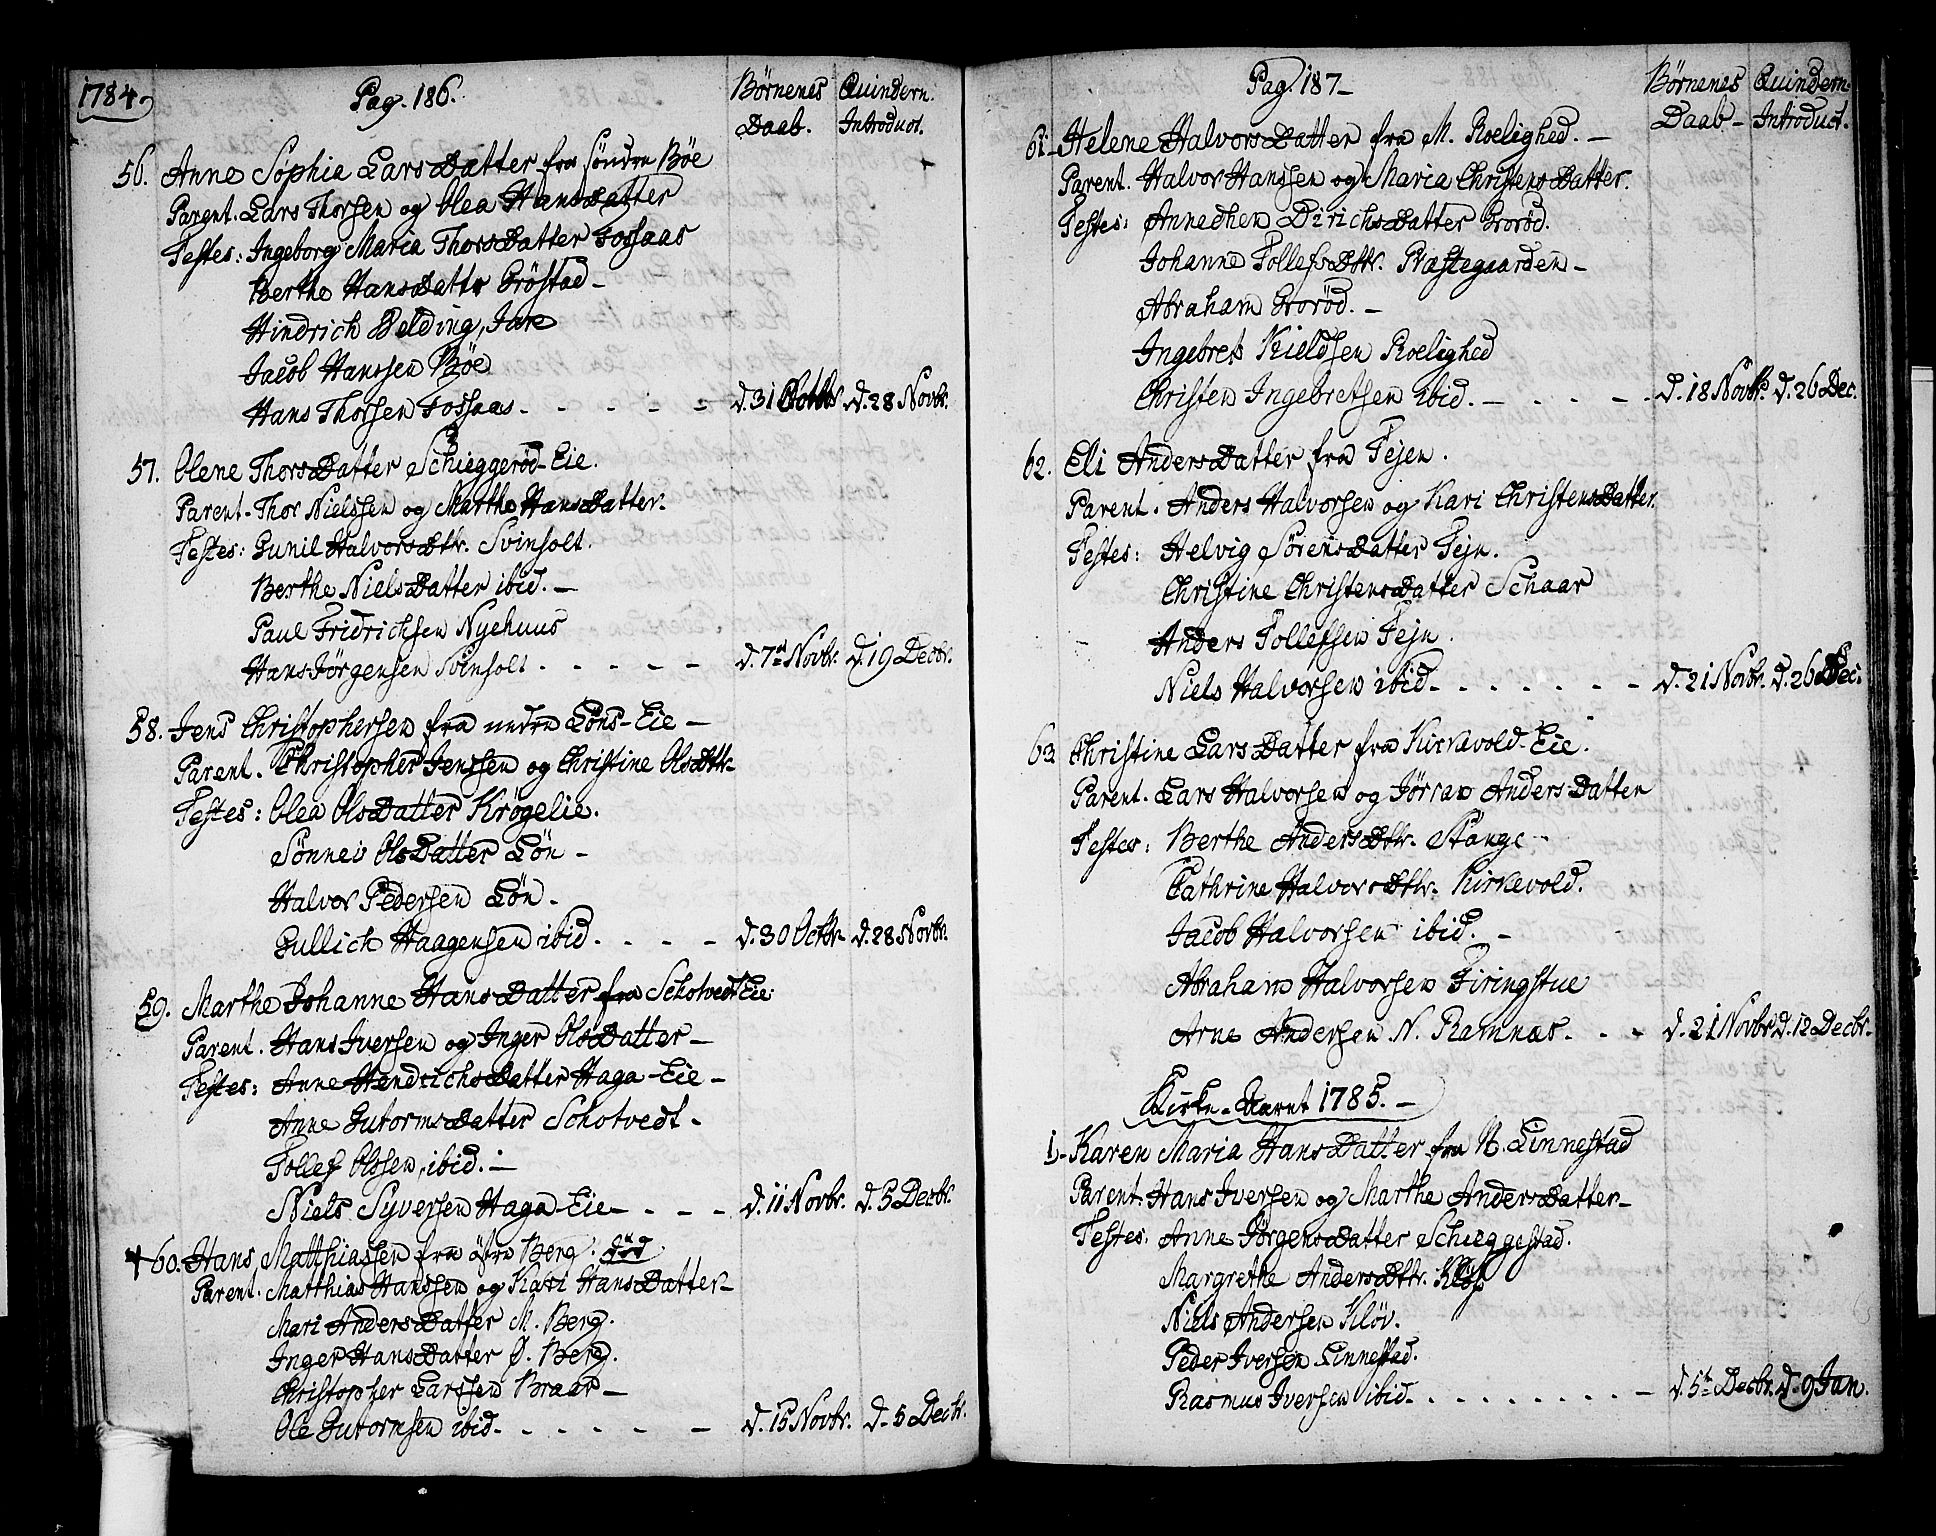 1784.
Pag. 186.
Börnenes Daab.
Quindern. Introduct.
56. Anne Sophia LarsDatter fra søndre Bøe
Parent. Lars Thorsen og Olea HansDatter
Testes: Ingeborg Maria ThorsDatter Fossaas
Berthe HansDattr Gröstad –
Hindrich Belding, Jare
Jacob Hanssen Bøe
Hans Thorsen Fossaas. - - - - d. 31 Octbr. d. 28 Novbr.
57. Olene ThorsDatter Schieggeröd-Eie.
Parent. Thor Nielssen og Marthe HansDatter.
Testes: Gunil HalvorsDttr. Svinholt.
Berthe NielsDatter ibid. –
Paul Fridrichsen Nyehuus
Hans Jörgensen Svinholt. - - - - d. 7de Novbr. d. 19 Decbr.
58. Jens Christophersen fra nedre Löns-Eie –
Parent. Christopher Jenssen og Christine OlsDttr.
Testes: Olea OlsDatter Krögelie.
Sönnev OlsDatter Lön –
Halvor Pedersen Lön.
Gullich Haagensen ibid. - - - d. 30 Octbr. d. 28 Novbr.
59. Marthe Johanne HansDatter fra Schotvedt Eie.
Parent. Hans Iversen og Inger OlsDatter –
Testes: Anne HendrichsDatter Haga-Eie –
Anne GutormsDatter Schotvedt –
Tollef Olssen, ibid. –
Niels Syversen Haga-Eie - - - - d. 11 Novbr. d. 5 Decbr.
+ 60. Hans Matthiassen fra östre Berg. död
Parent. Matthias Hanssen og Kari HansDatter –
Mari AndersDatter M. Berg.
Inger HansDatter Ø. Berg.
Christopher Larssen Braar –
Ole Gutormsen ibid. - - - - - d. 15 Novbr. d. 5 Decbr.
Pag. 187.
Börnenes Daab –
Quindern. Introduct.
61. Helene HalvorsDatter fra M. Roelighed. –
Parent. Halvor Hanssen og Maria ChristensDatter.
Testes: Annedhen DirichsDatter Gorød.
Johanne TollefsDttr. Præstegaarden –
Abraham Gorød. –
Ingebret Kieldsen Roelighed
Christen Ingebretsen ibid. - - - - d. 18 Novbr. d. 26 Dec.
62. Eli AndersDatter fra Fejen.
Parent. Anders Halvorsen og Kari ChristensDatter.
Testes: Helvig SörensDatter Fejn.
Christine ChristensDatter Schaar
Anders Tollefsen Fejn.
Niels Halvorsen ibid - - - - - - d. 21 Novbr. d. 26 Dec.
63 Christine LarsDatter fra Kirkevold-Eie.
Parent. Lars Halvorsen og Jörran AndersDatter
Testes: Berthe AndersDttr. Stange –
Cathrine HalvorsDttr. Kirkevold.
Jacob Halvorsen ibid. –
Abraham Halvorsen Firingstue
Arne Andersen N. Ramnæs. - - d. 21 Novbr. d. 12 Decbr.
Kirke-Aaret 1785. –
1. Karen Maria HansDatter fra N. Linnestad
Parent. Hans Iversen og Marthe AndersDatter –
Testes: Anne JörgensDatter Schieggestad.
Margrethe AndersDttr. Klöf
Niels Andersen Klöv.
Peder Iversen Linnestad.
Rasmus Iversen ibid. - - - - - - d. 5te Decbr. d. 9 Jan.